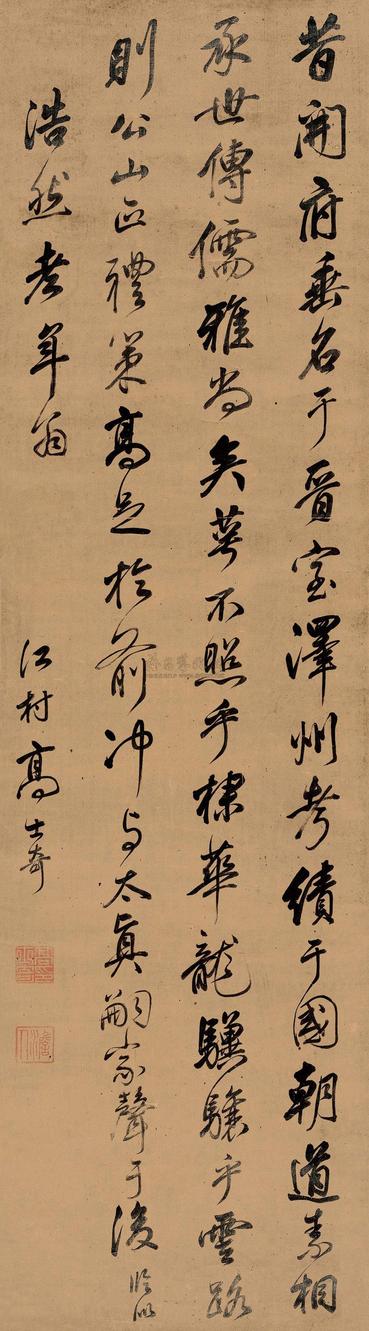 昔開府垂名于晉室澤州考績于國朝道素相
承世傳儒雅尚矣萼不照乎棣華龍驥驤乎雲路
則公山正禮策高足於前沖与太真嗣家聲于後臨似
浩然老年翁
江村高士奇